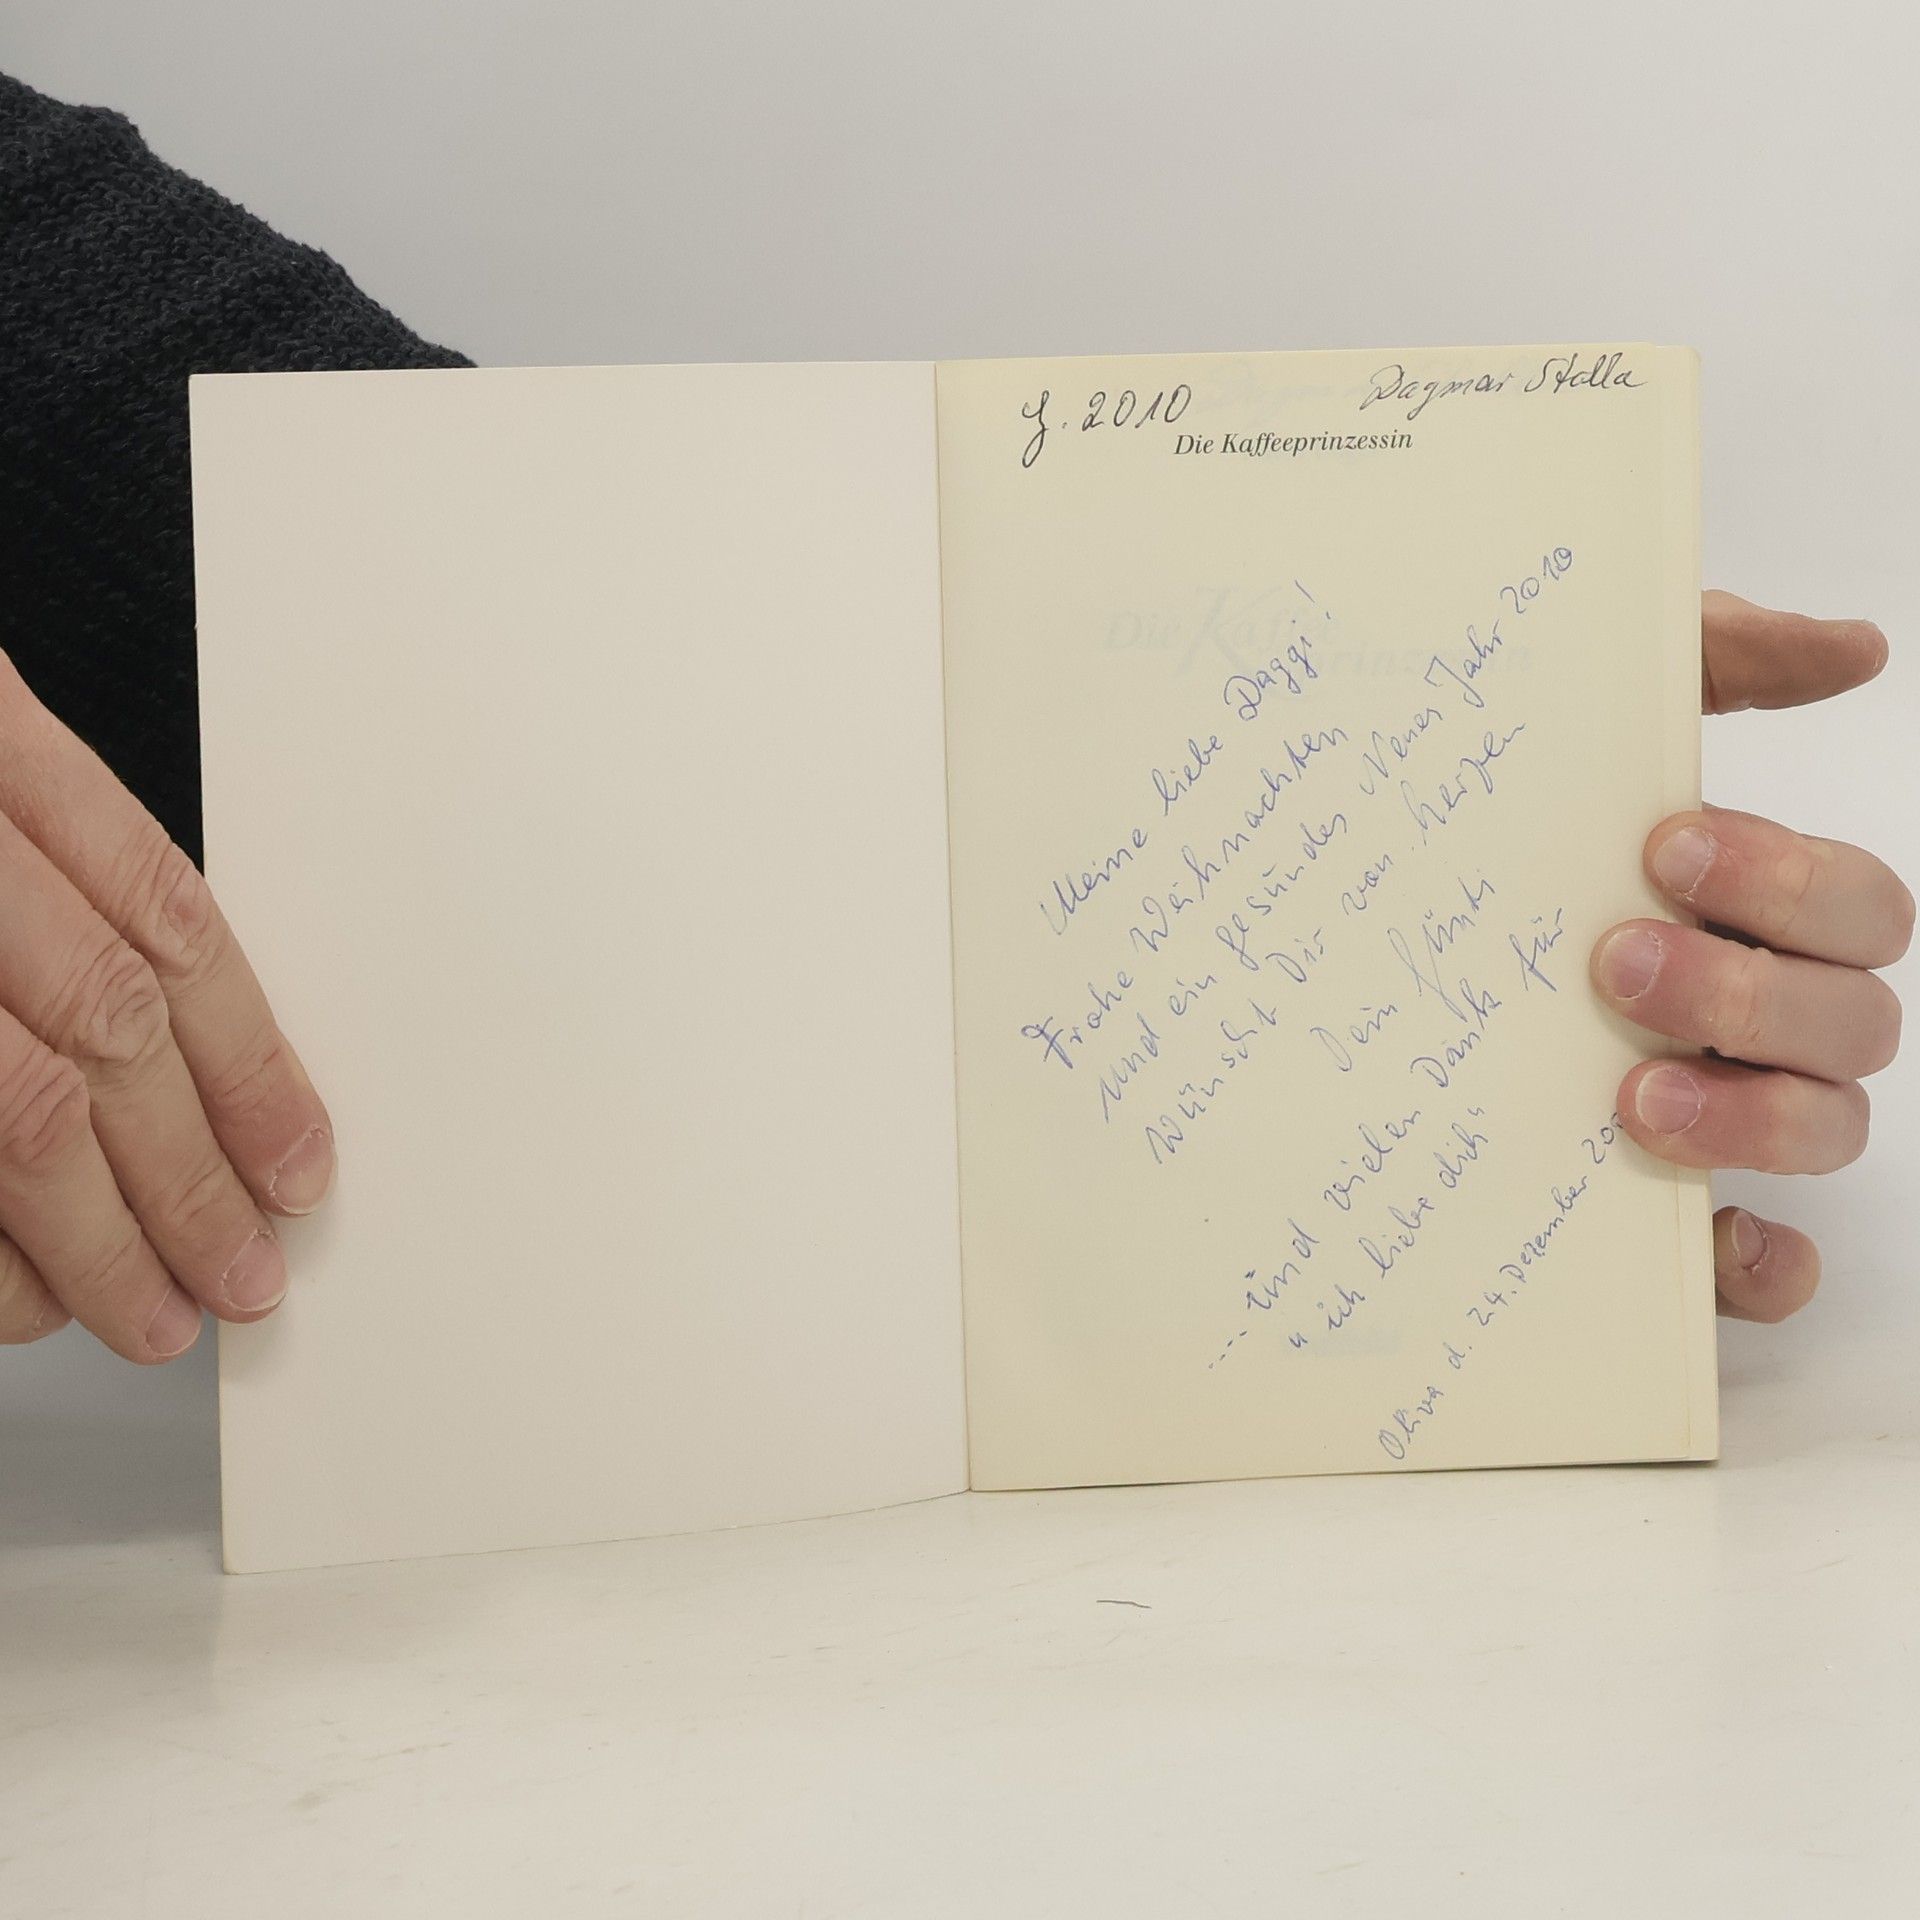 . 2010
Dagmar Stolla
Die Kaffeeprinzessin
Meine liebe Daggi!
Frohe Weihnachten
und ein gesundes Neues Jahr 2010
wünscht Dir von herzen
Dein
... und vielen Dank für
"ich liebe dich"
Oliva d. 24. Dezember